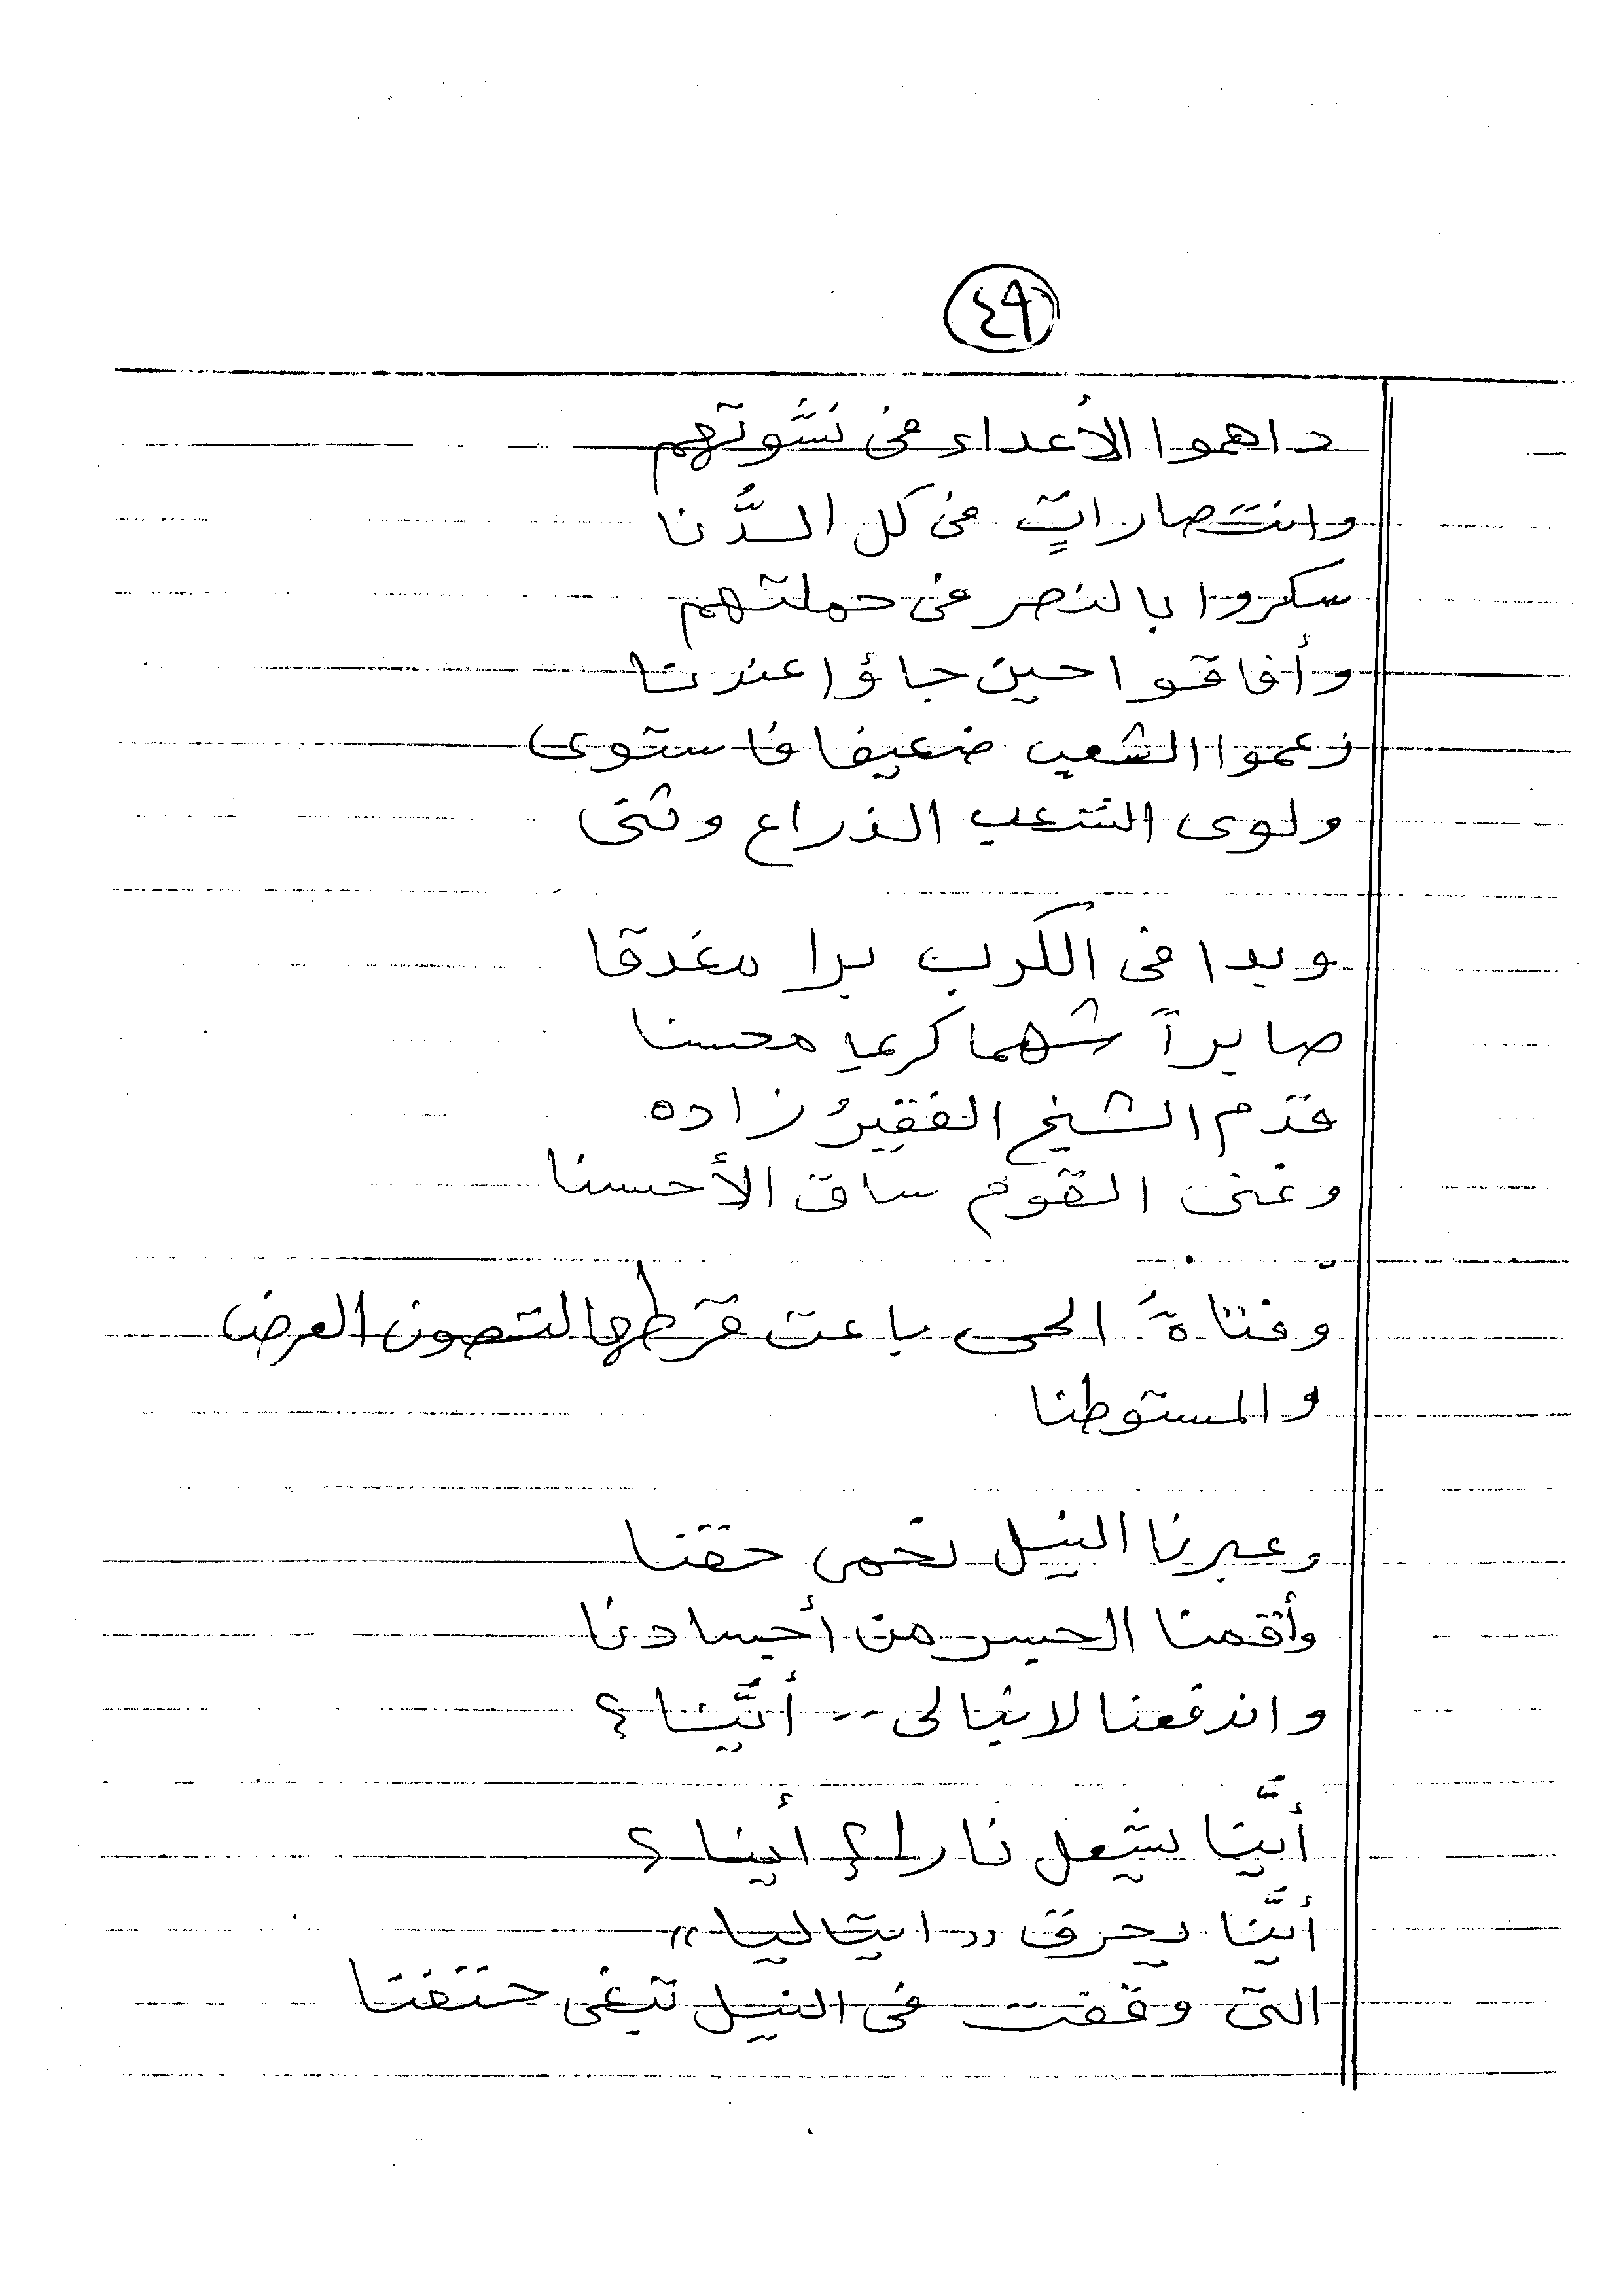 ٤٩
داهموا الأعداء فى نشوتهم
وانتصاراتٍ فى كل الدُّنا
سكروا بالنصر فى حملتهم
وأفاقوا حين جاؤا عندنا
زعموا الشعب ضعيفا فاستوى
ولوى الشعب الذراع وثنى
وبدا فى الكرب برا مغدقا
صابراً شهما كريما محسنا
قدم الشيخ الفقيرُ زاده
وغنى القوم ساق الأحسنا
وفتاةُ الحى باعت قرطها لتصون العرض
والمستوطنا
وعبرنا النيل نحمى حقنا
وأقمنا الجسر من أجسادنا
واندفعنا لا نبالى -- أيَّنا ؟
أيَّنا يشعل نارا ؟ أينا ؟
أيَّنا يحرق "ايتاليا"
التى وقفت فى النيل تبغى حتفنا